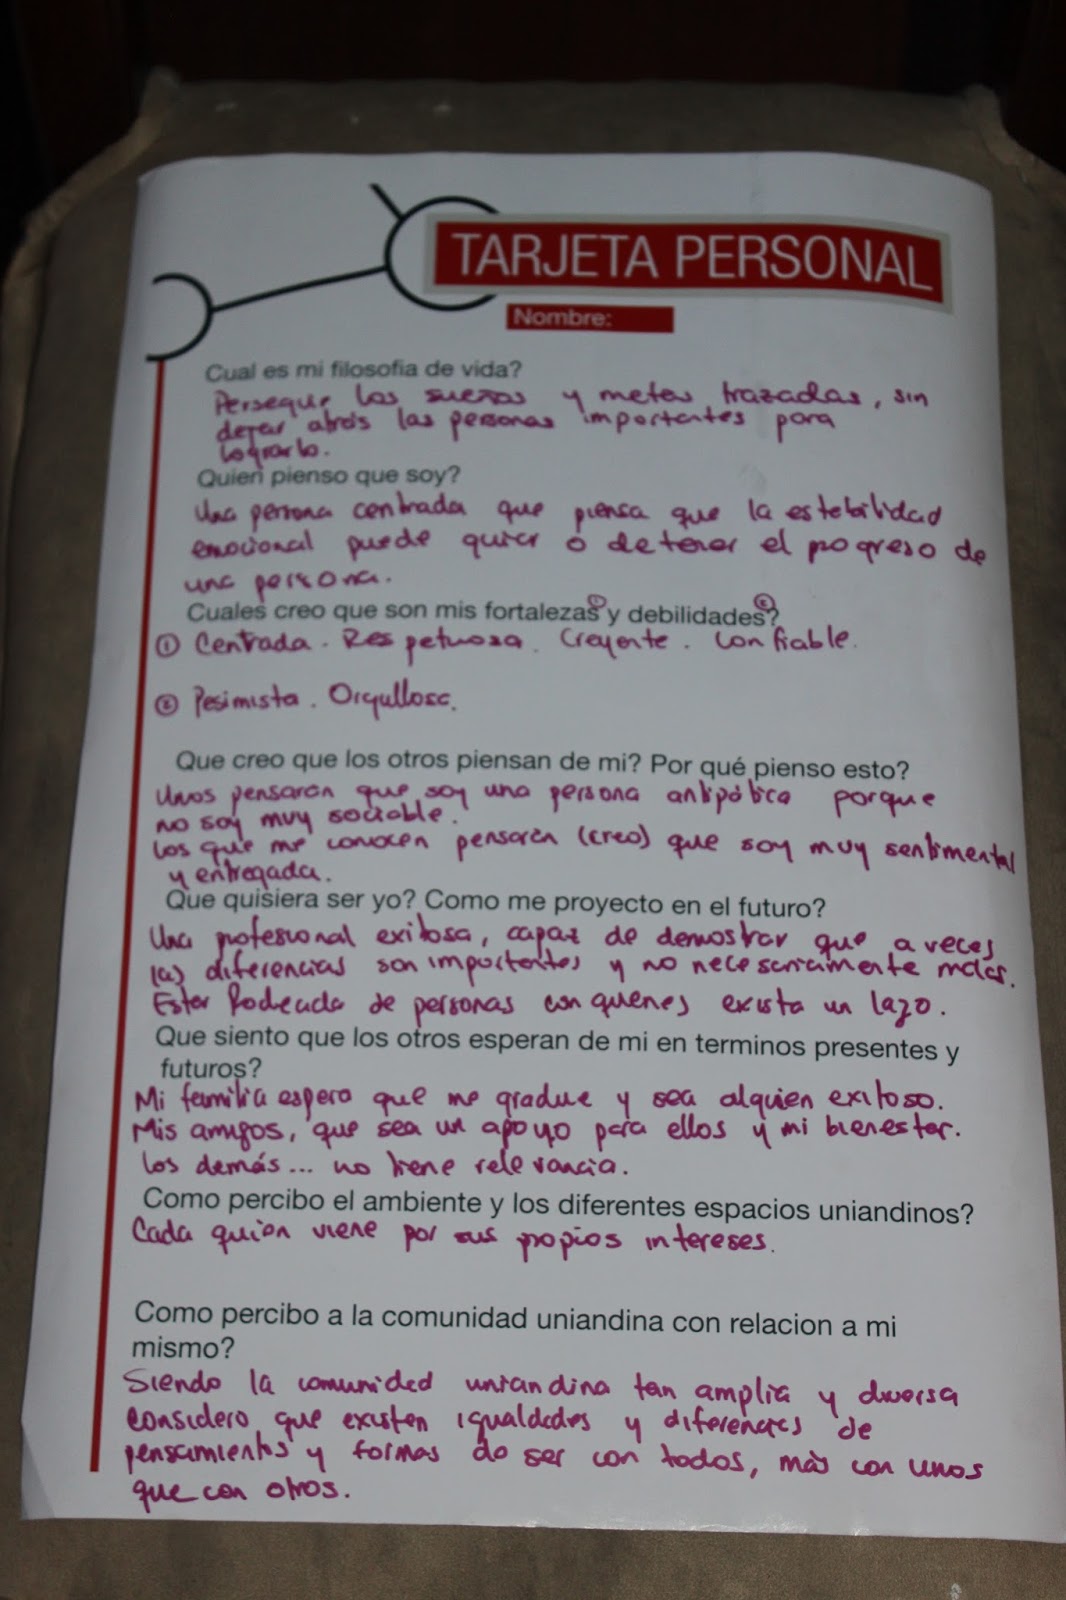 TARJETA PERSONAL
Nombre:
Cual es mi filosofia de vida?
Perseguir los sueños y metas trazadas, sin
dejar atrás las personas importantes para
lograrlo.
Quien pienso que soy?
Una persona centrada que piensa que la estabilidad
emocional puede guiar o detener el pogreso de
una persona.
Cuales creo que son mis fortalezas① y debilidades②?
① Centrada. Respetuosa. Creyente. Confiable.
② Pesimista. Orgullosa.
Que creo que los otros piensan de mi? Por qué pienso esto?
Unos pensaran que soy una persona antipática porque
no soy muy sociable.
Los que me conocen pensarán (creo) que soy muy sentimental
y entregada.
Que quisiera ser yo? Como me proyecto en el futuro?
Una profesional exitosa, capaz de demostrar que a veces
las diferencias son importantes y no necesariamente malas.
Estar Rodeada de personas con quienes exista un lazo.
Que siento que los otros esperan de mi en terminos presentes y
futuros?
Mi familia espera que me gradue y sea alguien exitoso.
Mis amigos, que sea un apoyo para ellos y mi bienestar.
Los demás... no tiene relevancia.
Como percibo el ambiente y los diferentes espacios uniandinos?
Cada quien viene por sus propios intereses.
Como percibo a la comunidad uniandina con relacion a mi
mismo?
Siendo la comunidad uniandina tan amplia y diversa
considero que existen igualdades y diferencias de
pensamientos y formas de ser con todos, más con unos
que con otros.